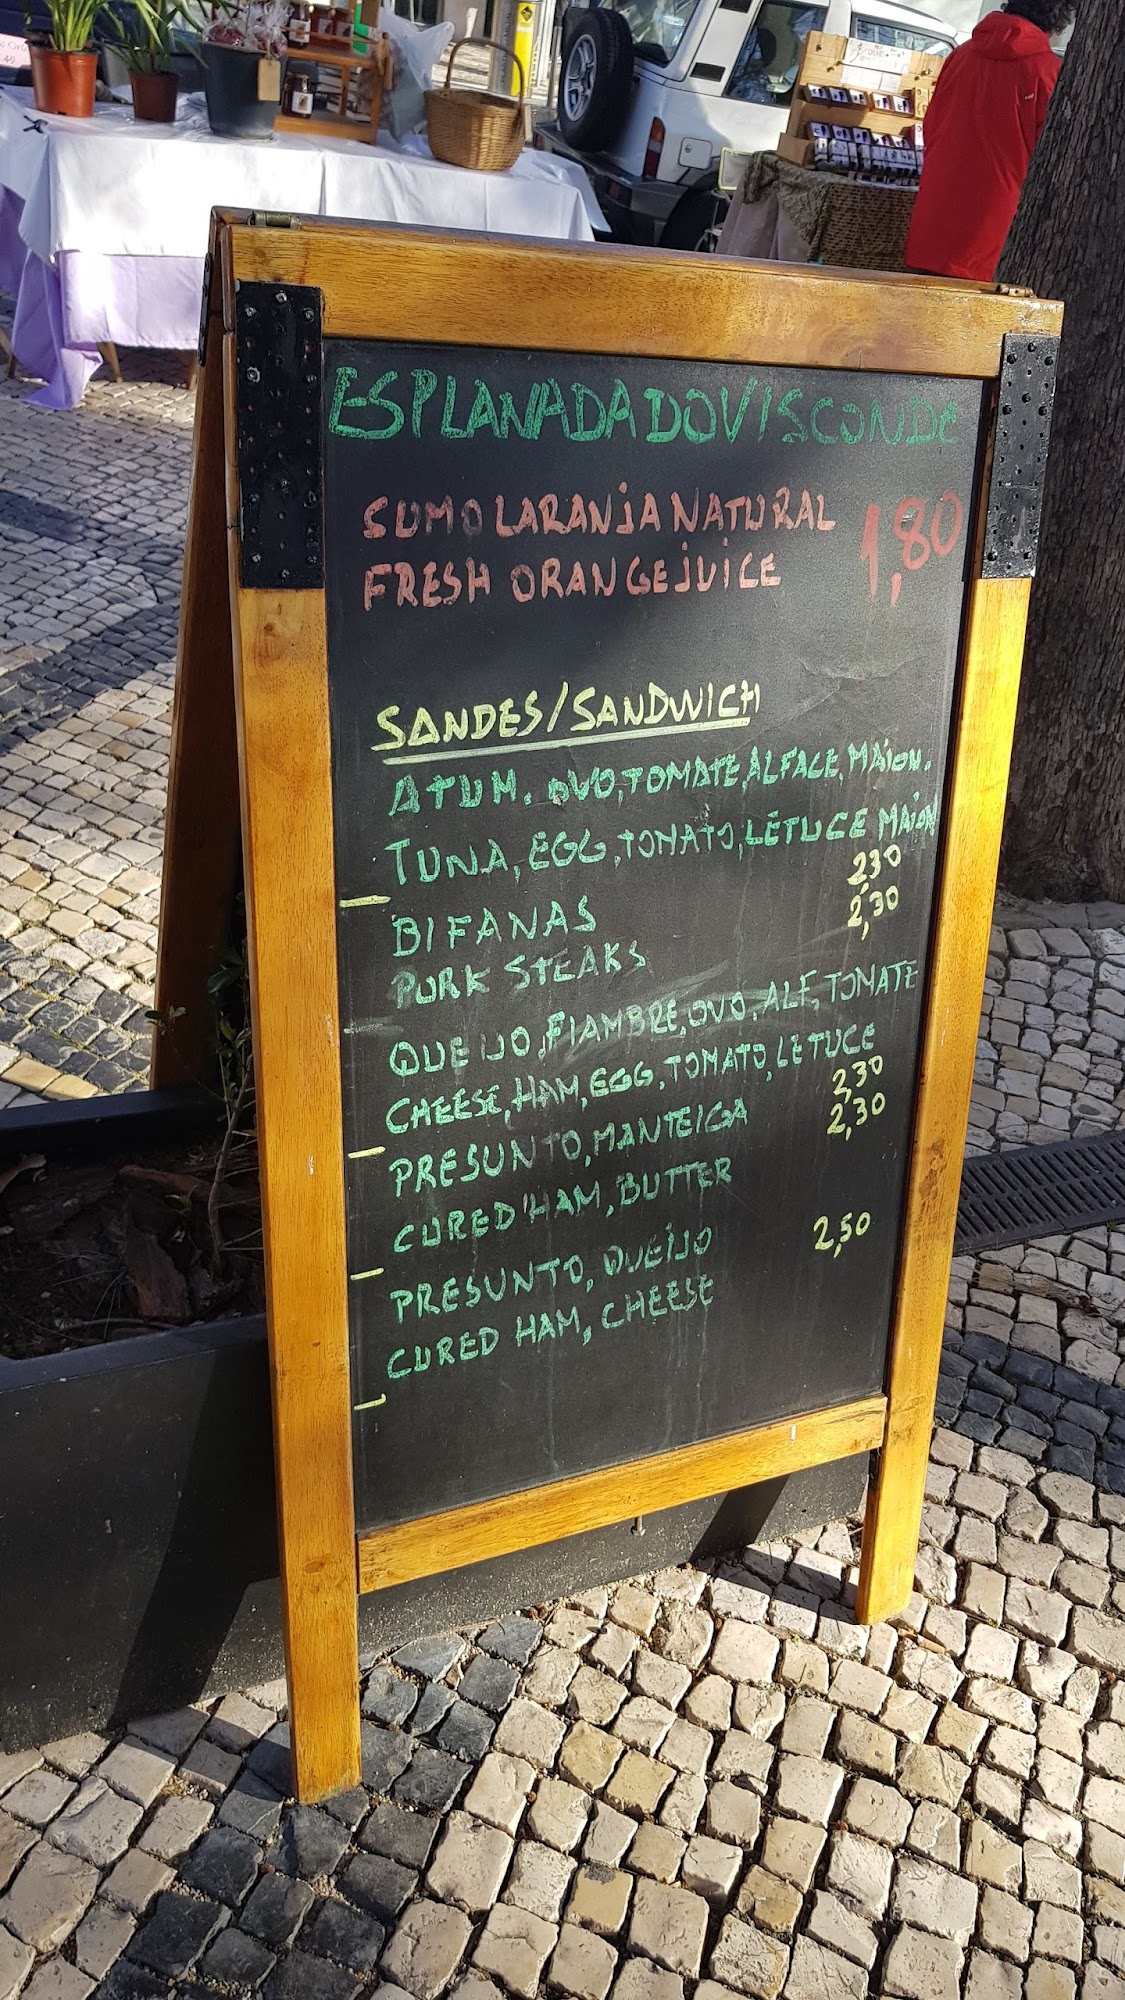 ESPLANADA DO VISCONDE
SUMO LARANJA NATURAL 1,80
FRESH ORANGE JUICE
SANDES/SANDWICH
ATUM. OVO, TOMATE, ALFACE, MAION.
TUNA, EGG, TOMATO, LETUCE MAION
2,30
BIFANAS 2,30
PORK STEAKS
QUEIJO, FIAMBRE, OVO, ALF, TOMATE
CHEESE, HAM, EGG, TOMATO, LETUCE
2,30
PRESUNTO, MANTEIGA 2,30
CURED HAM, BUTTER
PRESUNTO, QUEIJO 2,50
CURED HAM, CHEESE